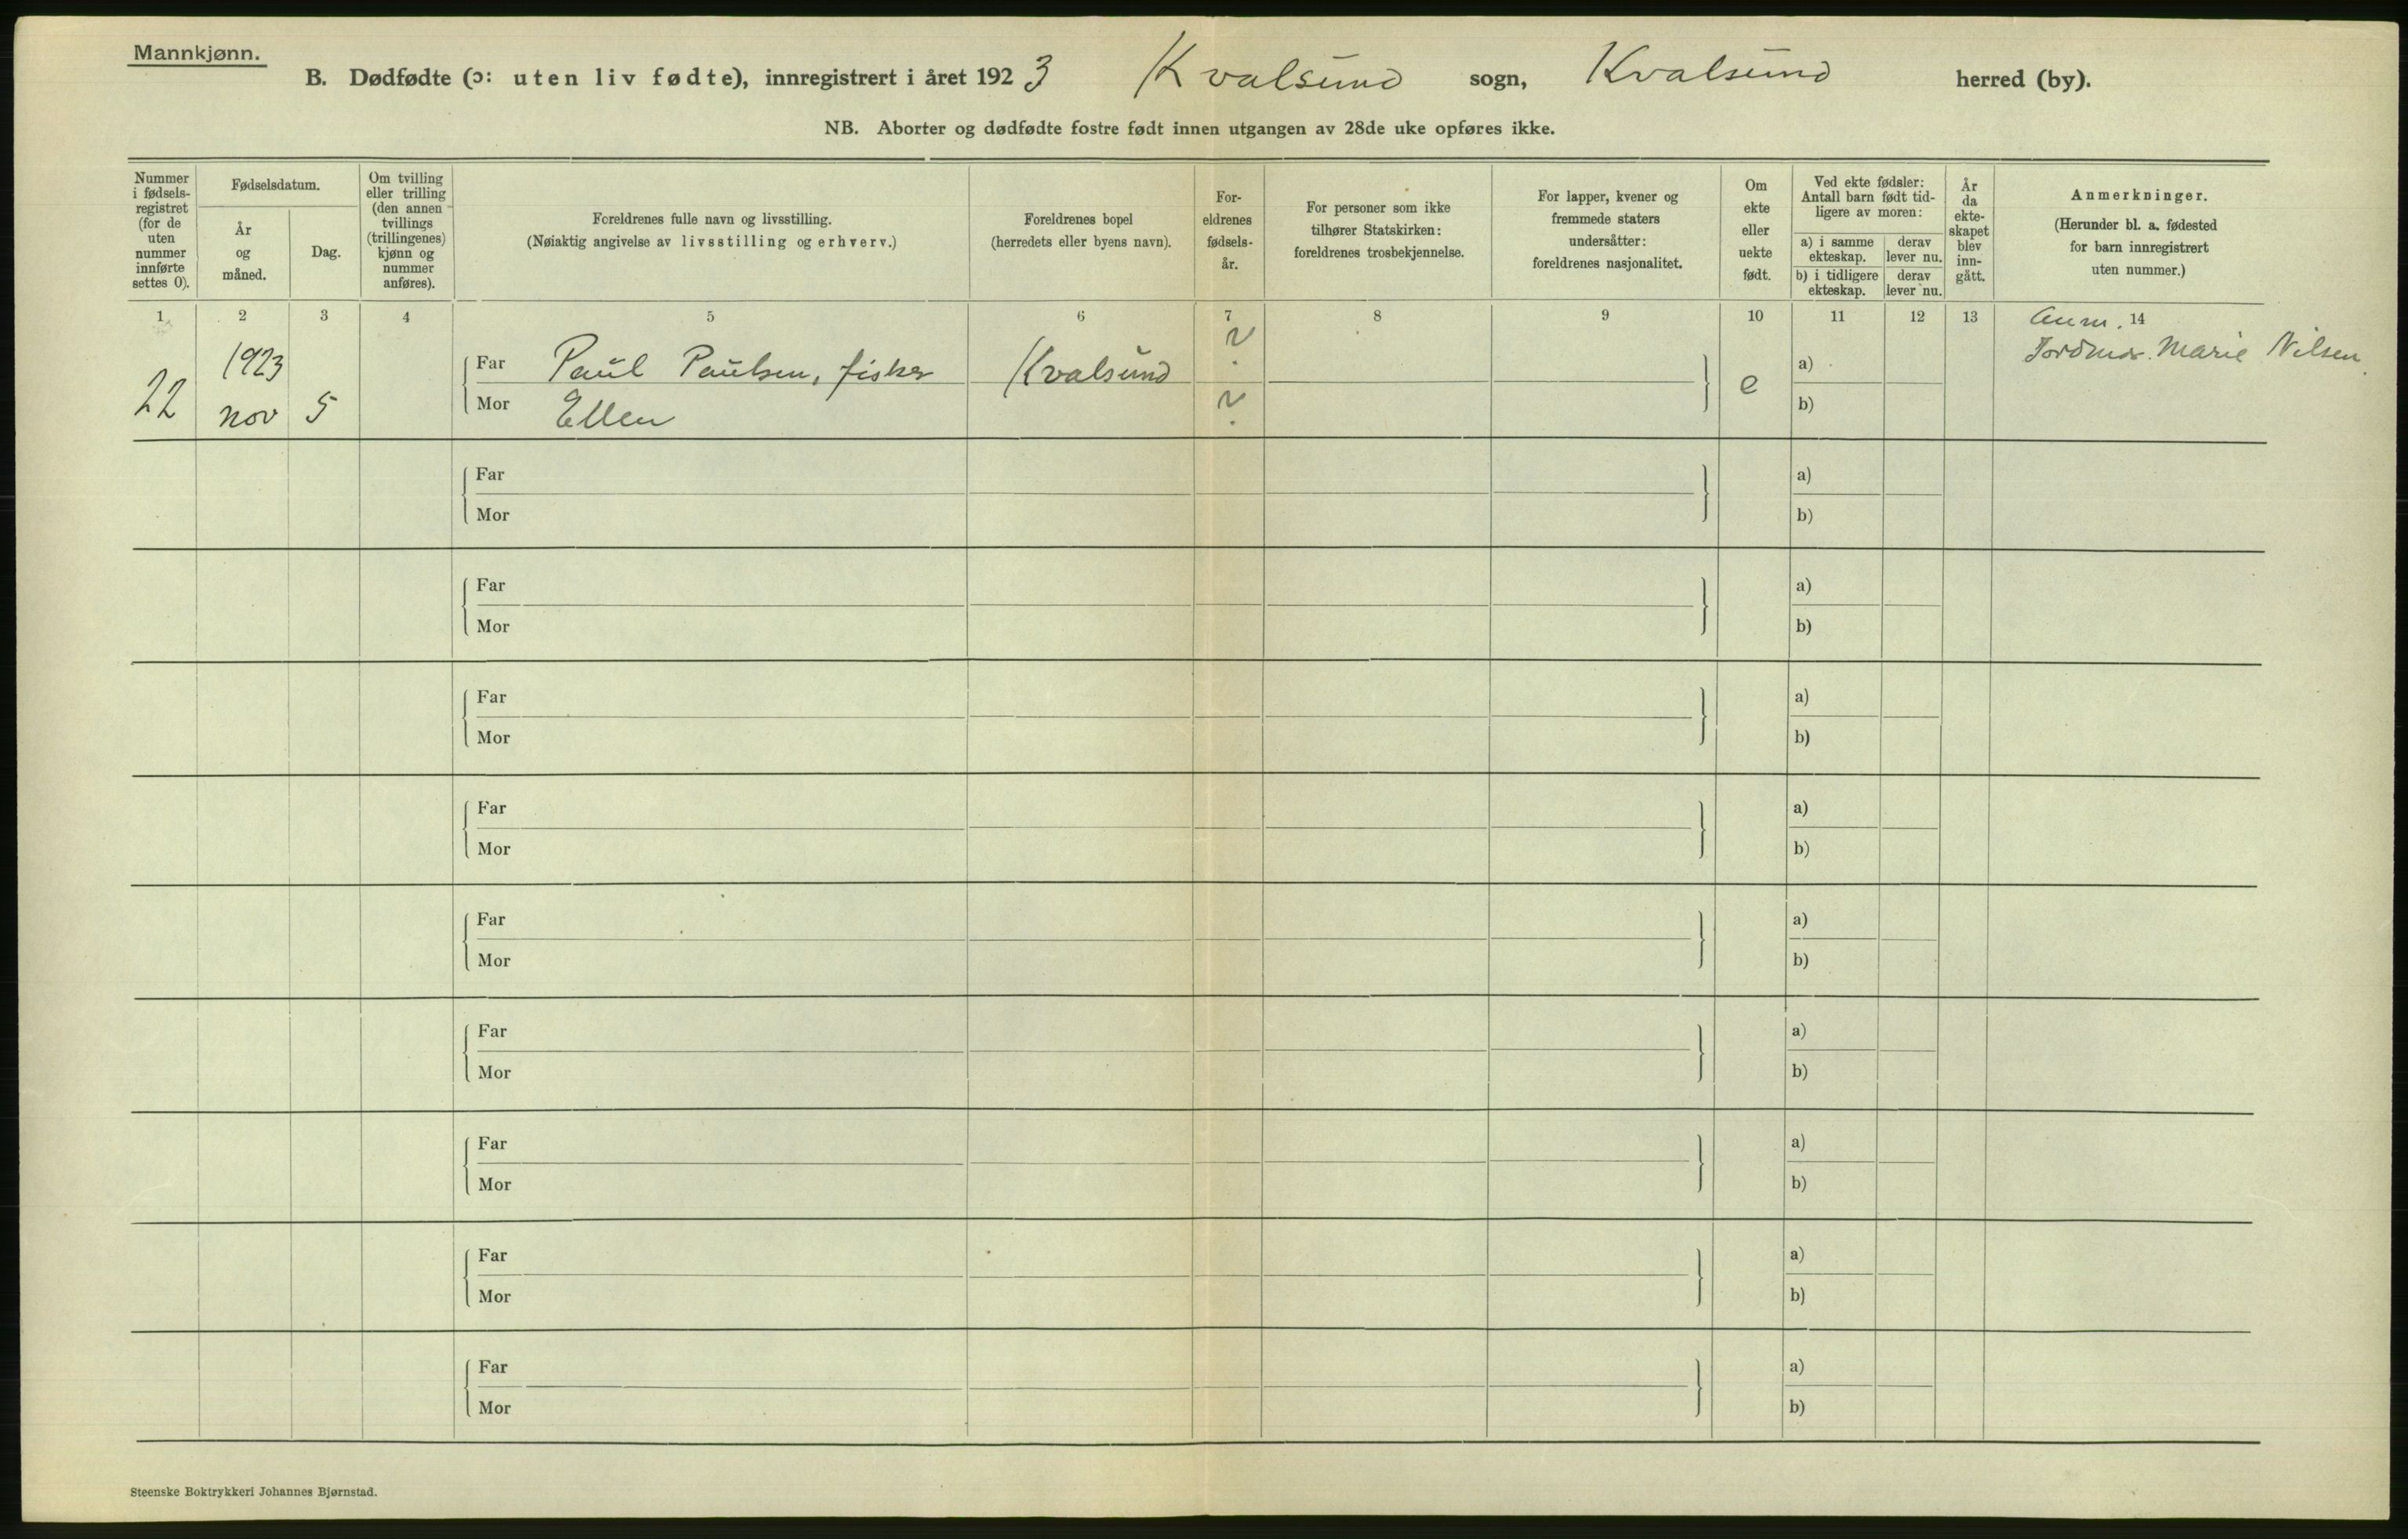 Mannkjønn.
B. Dødfødte (ɔ: uten liv fødte), innregistrert i året 1923 Kvalsund sogn, Kvalsund herred (by).
NB. Aborter og dødfødte fostre født innen utgangen av 28de uke opføres ikke.
Nummer
i fødsels-
registret
(for de
uten
nummer
innførte
settes 0).
Fødselsdatum.
År
og
måned.
Dag.
Om tvilling
eller trilling
(den annen
tvillings
(trillingenes)
kjønn og
nummer
anføres).
Foreldrenes fulle navn og livsstilling.
(Nøiaktig angivelse av livsstilling og erhverv.)
Foreldrenes bopel
(herredets eller byens navn).
For-
eldrenes
fødsels-
år.
For personer som ikke
tilhører Statskirken:
foreldrenes trosbekjennelse.
For lapper, kvener og
fremmede staters
undersåtter:
foreldrenes nasjonalitet.
Om
ekte
eller
uekte
født.
Ved ekte fødsler:
Antall barn født tid-
ligere av moren:
a) i samme
ekteskap.
derav
lever nu.
b) i tidligere
ekteskap.
derav
lever nu.
År
da
ekte-
skapet
blev
inn-
gått.
Anmerkninger.
(Herunder bl. a. fødested
for barn innregistrert
uten nummer.)
1 2 3 4 5 6 7 8 9 10 11 12 13 14
Anm.
Jordmor Marie Nilsen.
22
1923
nov 5
Far Paul Paulsen, fisker Kvalsund ?
Mor Ellen ?
e
a)
b)
Far a)
Mor b)
Far a)
Mor b)
Far a)
Mor b)
Far a)
Mor b)
Far a)
Mor b)
Far a)
Mor b)
Far a)
Mor b)
Far a)
Mor b)
Far a)
Mor b)
Steenske Boktrykkeri Johannes Bjørnstad.